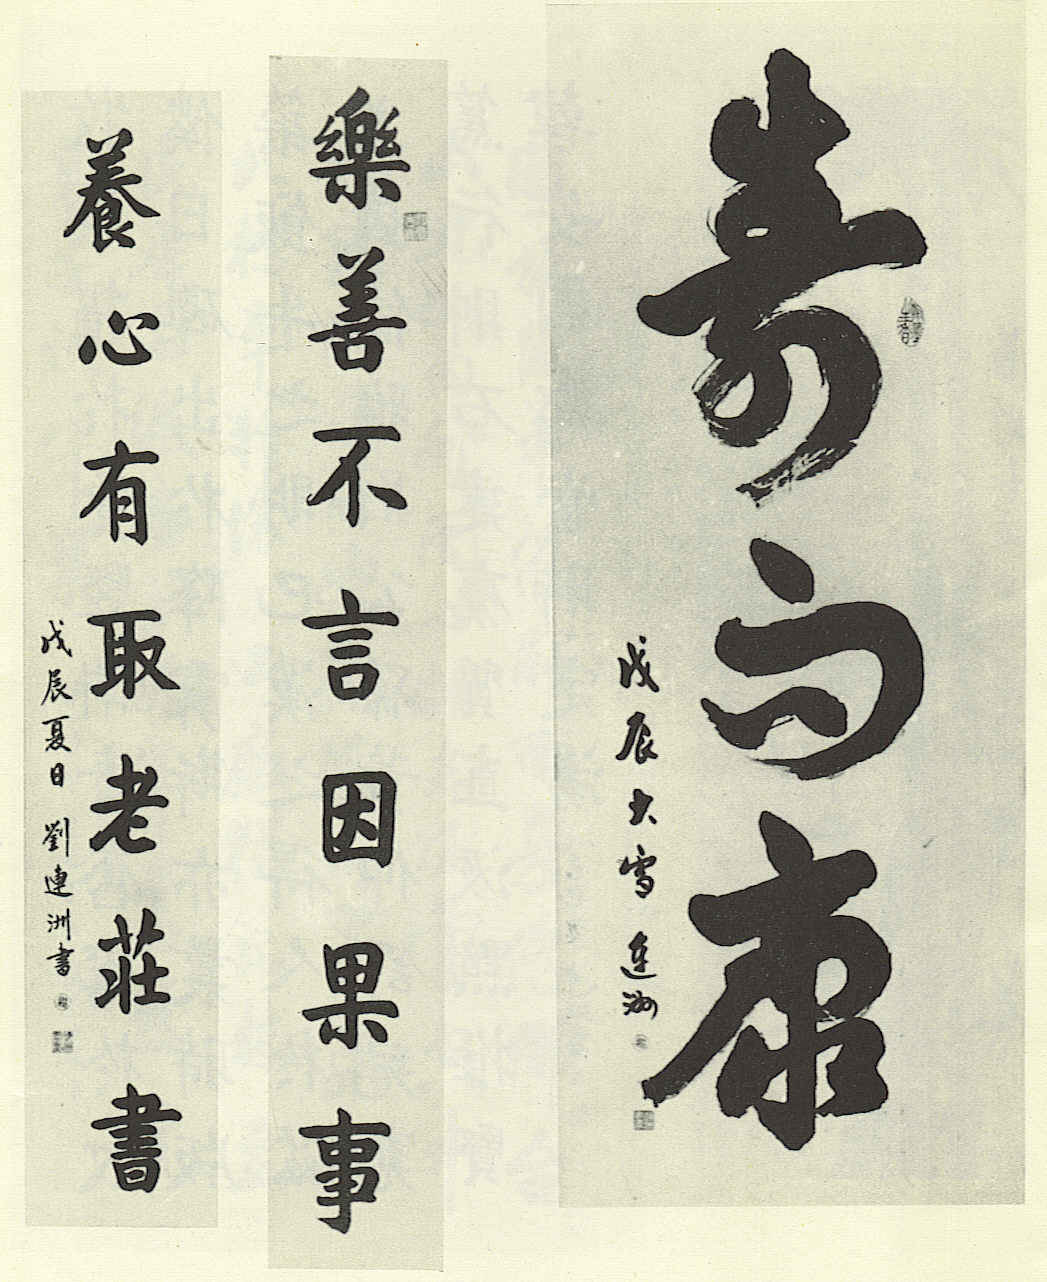 壽而康
戊辰大雪 連洲
樂善不言因果事
養心有取老莊書
戊辰夏日 劉連洲書